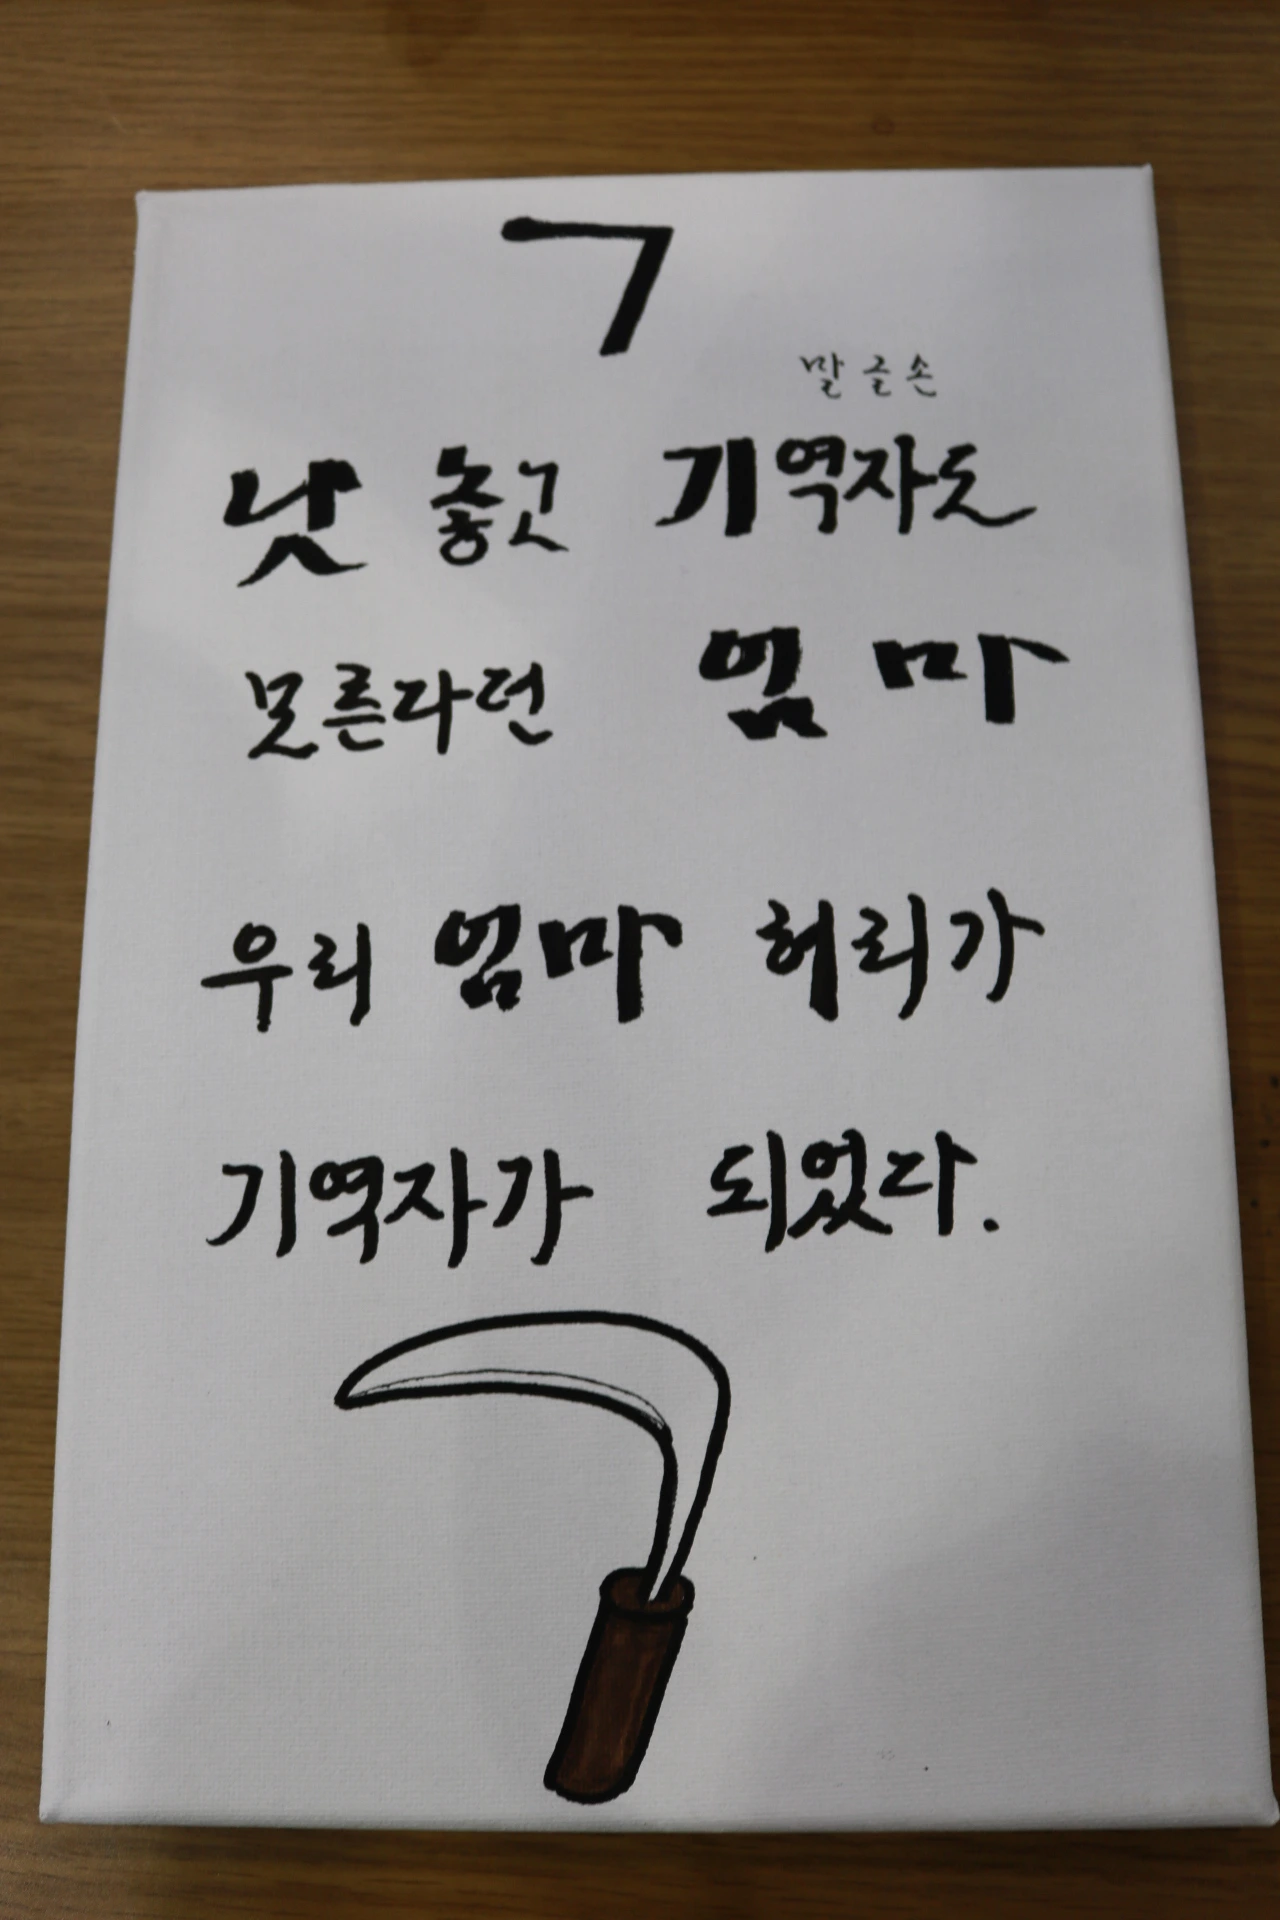 ㄱ
말글손
낫 놓고 기역자도
모른다던 엄마
우리 엄마 허리가
기역자가 되었다.